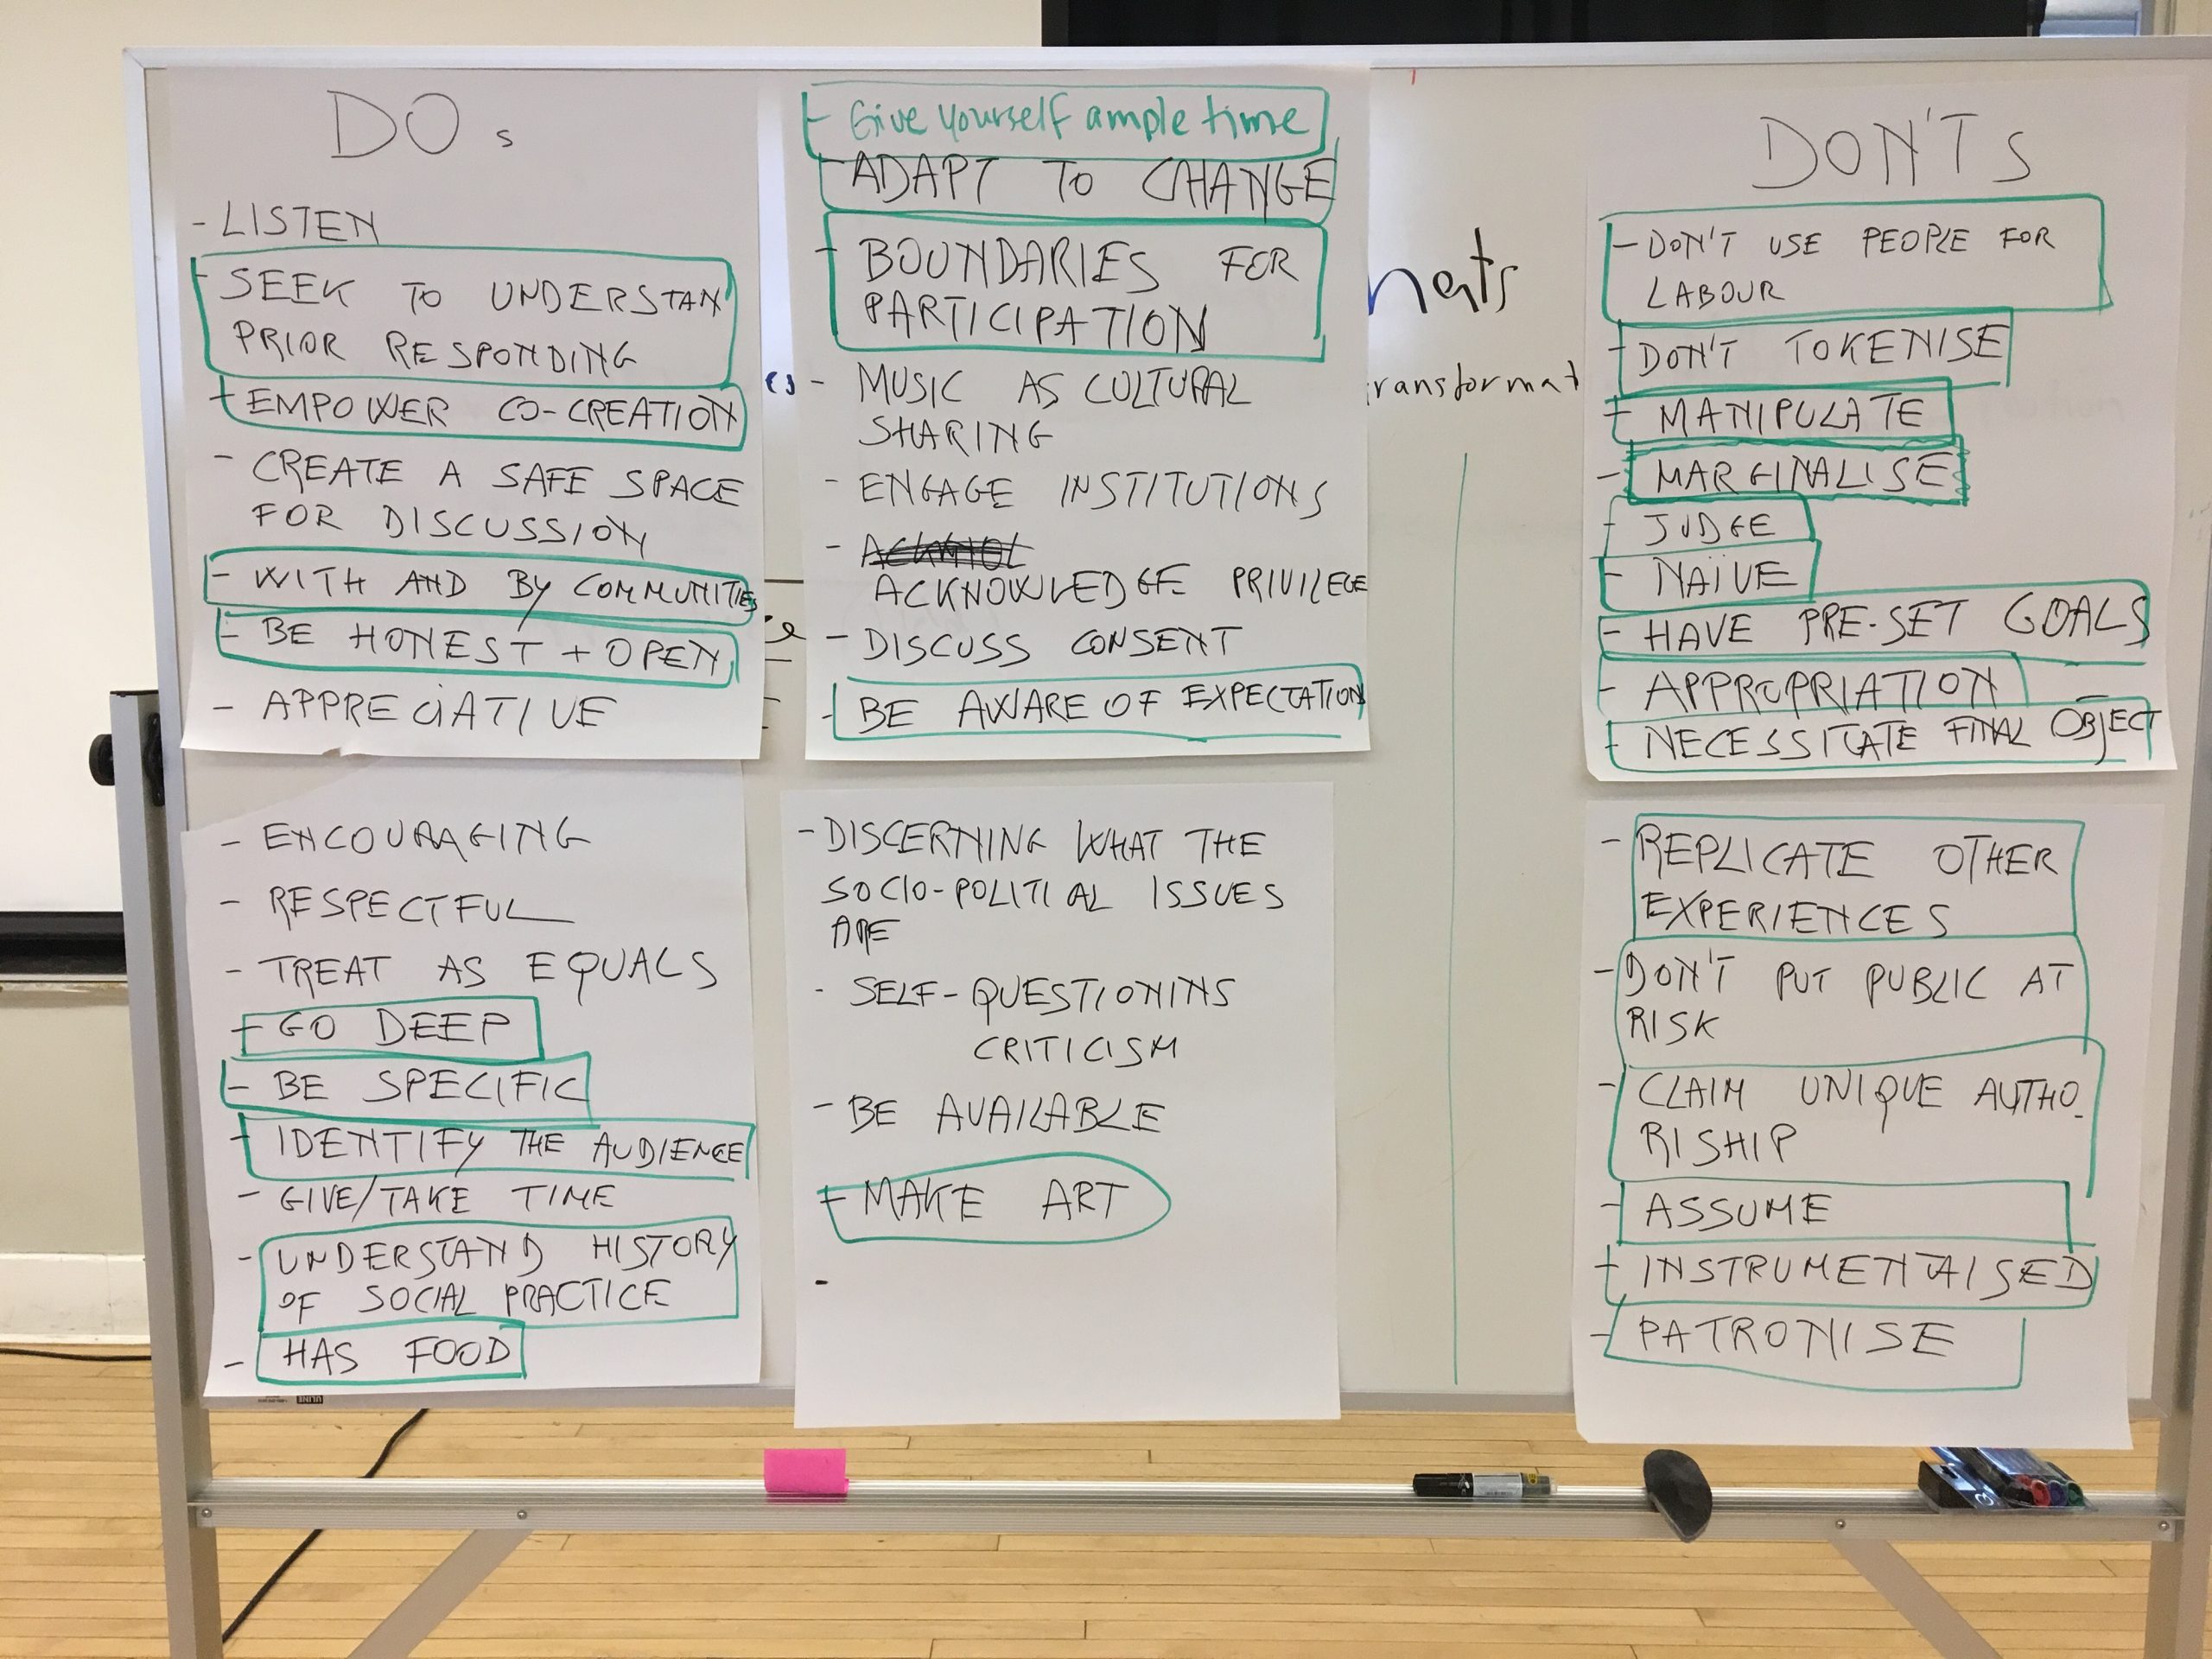 DO s
- LISTEN
- SEEK TO UNDERSTAN
PRIOR RESPONDING
- EMPOWER CO-CREATION
- CREATE A SAFE SPACE
FOR DISCUSSION
- WITH AND BY COMMUNITIES
- BE HONEST + OPEN
- APPRECIATIVE
- ENCOURAGING
- RESPECTFUL
- TREAT AS EQUALS
- GO DEEP
- BE SPECIFIC
- IDENTIFY THE AUDIENCE
- GIVE/TAKE TIME
- UNDERSTAND HISTORY
OF SOCIAL PRACTICE
- HAS FOOD
ULINE
- Give yourself ample time
- ADAPT TO CHANGE
- BOUNDARIES FOR
PARTICIPATION
- MUSIC AS CULTURAL
SHARING
- ENGAGE INSTITUTIONS
- ACKNOWLEDGE PRIVILEGE
- DISCUSS CONSENT
- BE AWARE OF EXPECTATION
- DISCERNING WHAT THE
SOCIO-POLITICAL ISSUES
ARE
- SELF-QUESTIONING
CRITICISM
- BE AVAILABLE
- MAKE ART
-
nats
ransformat
DON'T s
- DON'T USE PEOPLE FOR
LABOUR
- DON'T TOKENISE
- MANIPULATE
- MARGINALISE
- JUDGE
- NAÏVE
- HAVE PRE-SET GOALS
- APPROPRIATION
- NECESSITATE FINAL OBJECT
- REPLICATE OTHER
EXPERIENCES
- DON'T PUT PUBLIC AT
RISK
- CLAIM UNIQUE AUTHO-
RISHIP
- ASSUME
- INSTRUMENTAISED
- PATRONISE